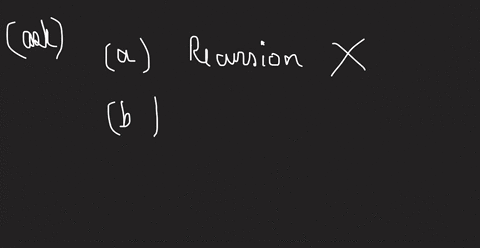 (ask)
(a) Recursion X
(b )